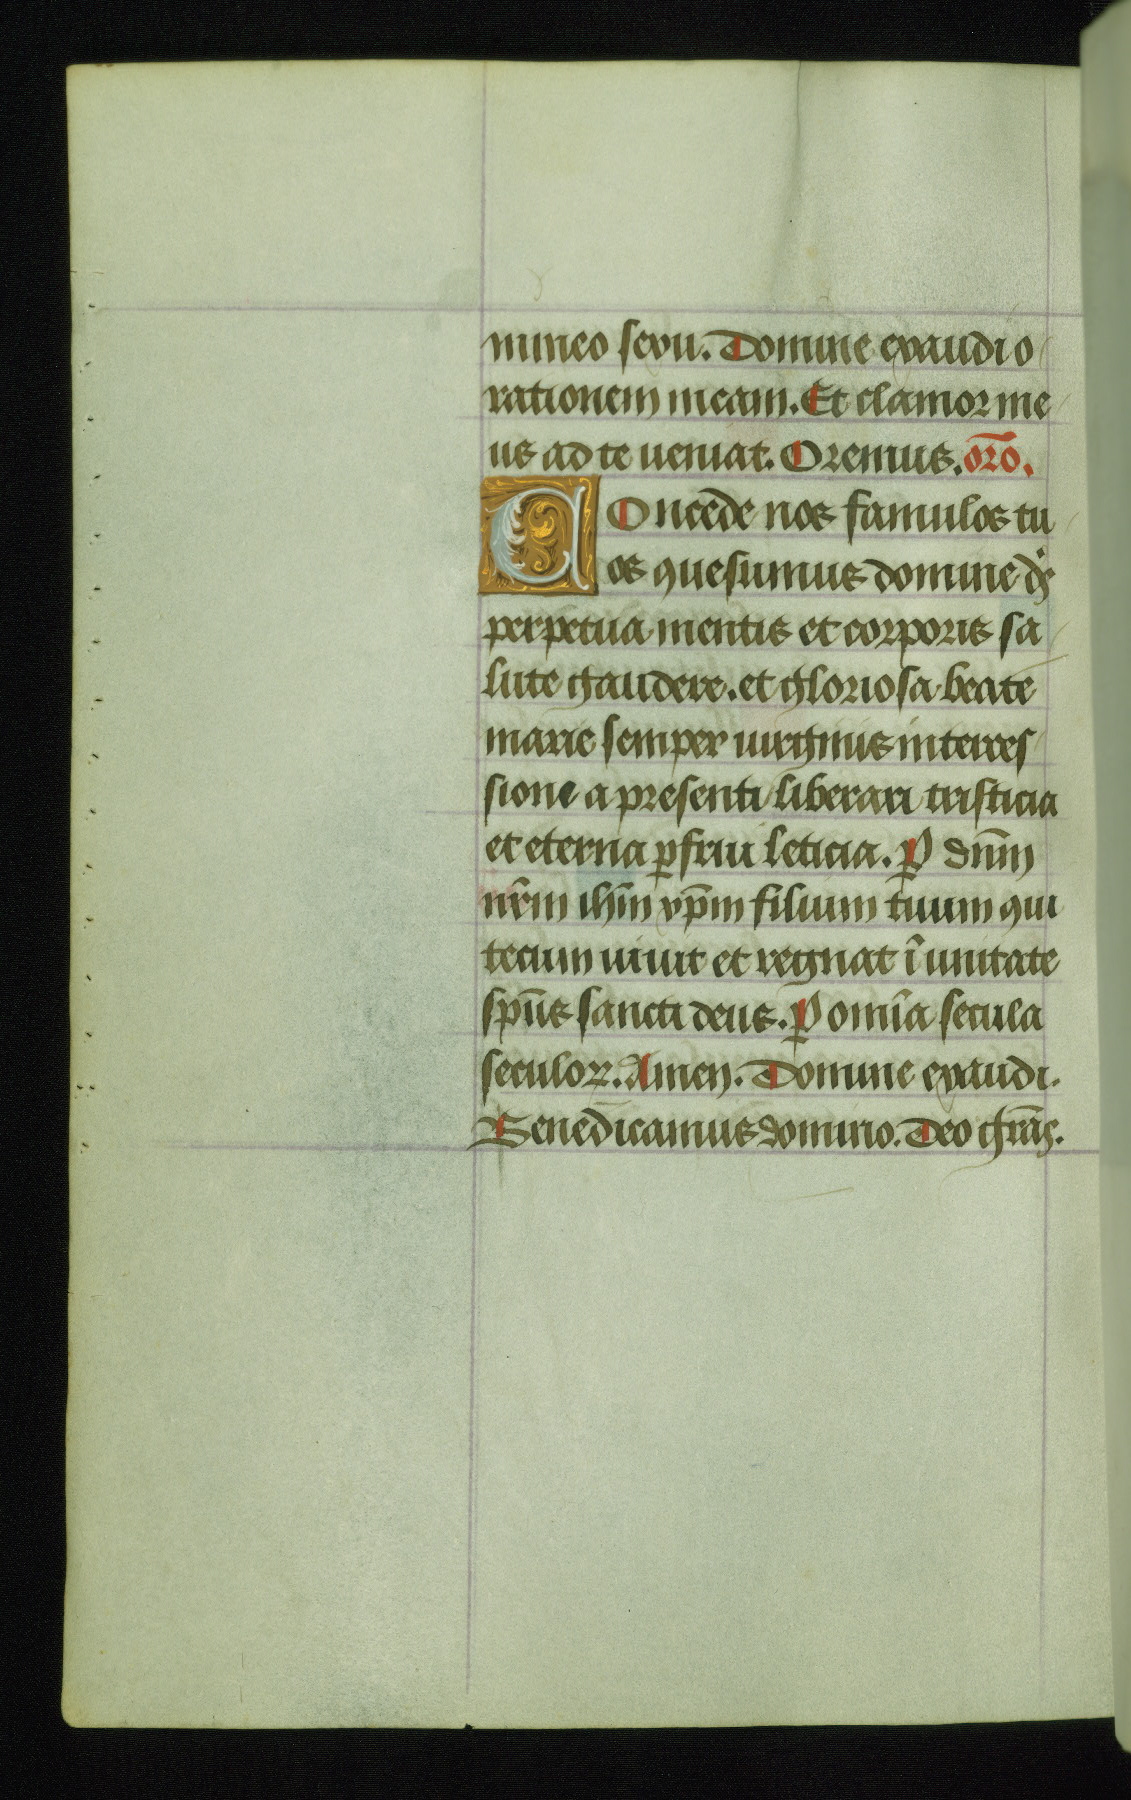 mineo sexu. Domine exaudi o
rationem meam. Et clamor me
us ad te ueniat. Oremus. oro̅.
Concede nos famulos tu
os quesumus domine ds̅
perpetua mentis et corporis sa
lute gaudere. et gloriosa beate
marie semper uirginis interces
sione a presenti liberari tristicia
et eterna ꝑfrui leticia. Ꝑ dnm̅
nrm̅ ihm̅ xpm̅ filium tuum qui
tecum uiuit et regnat i̅ unitate
spu̅s sancti deus. Ꝑ omi̅a secula
seculoꝝ. Amen. Domine exaudi.
Benedicamus domino. Deo gra̅s.